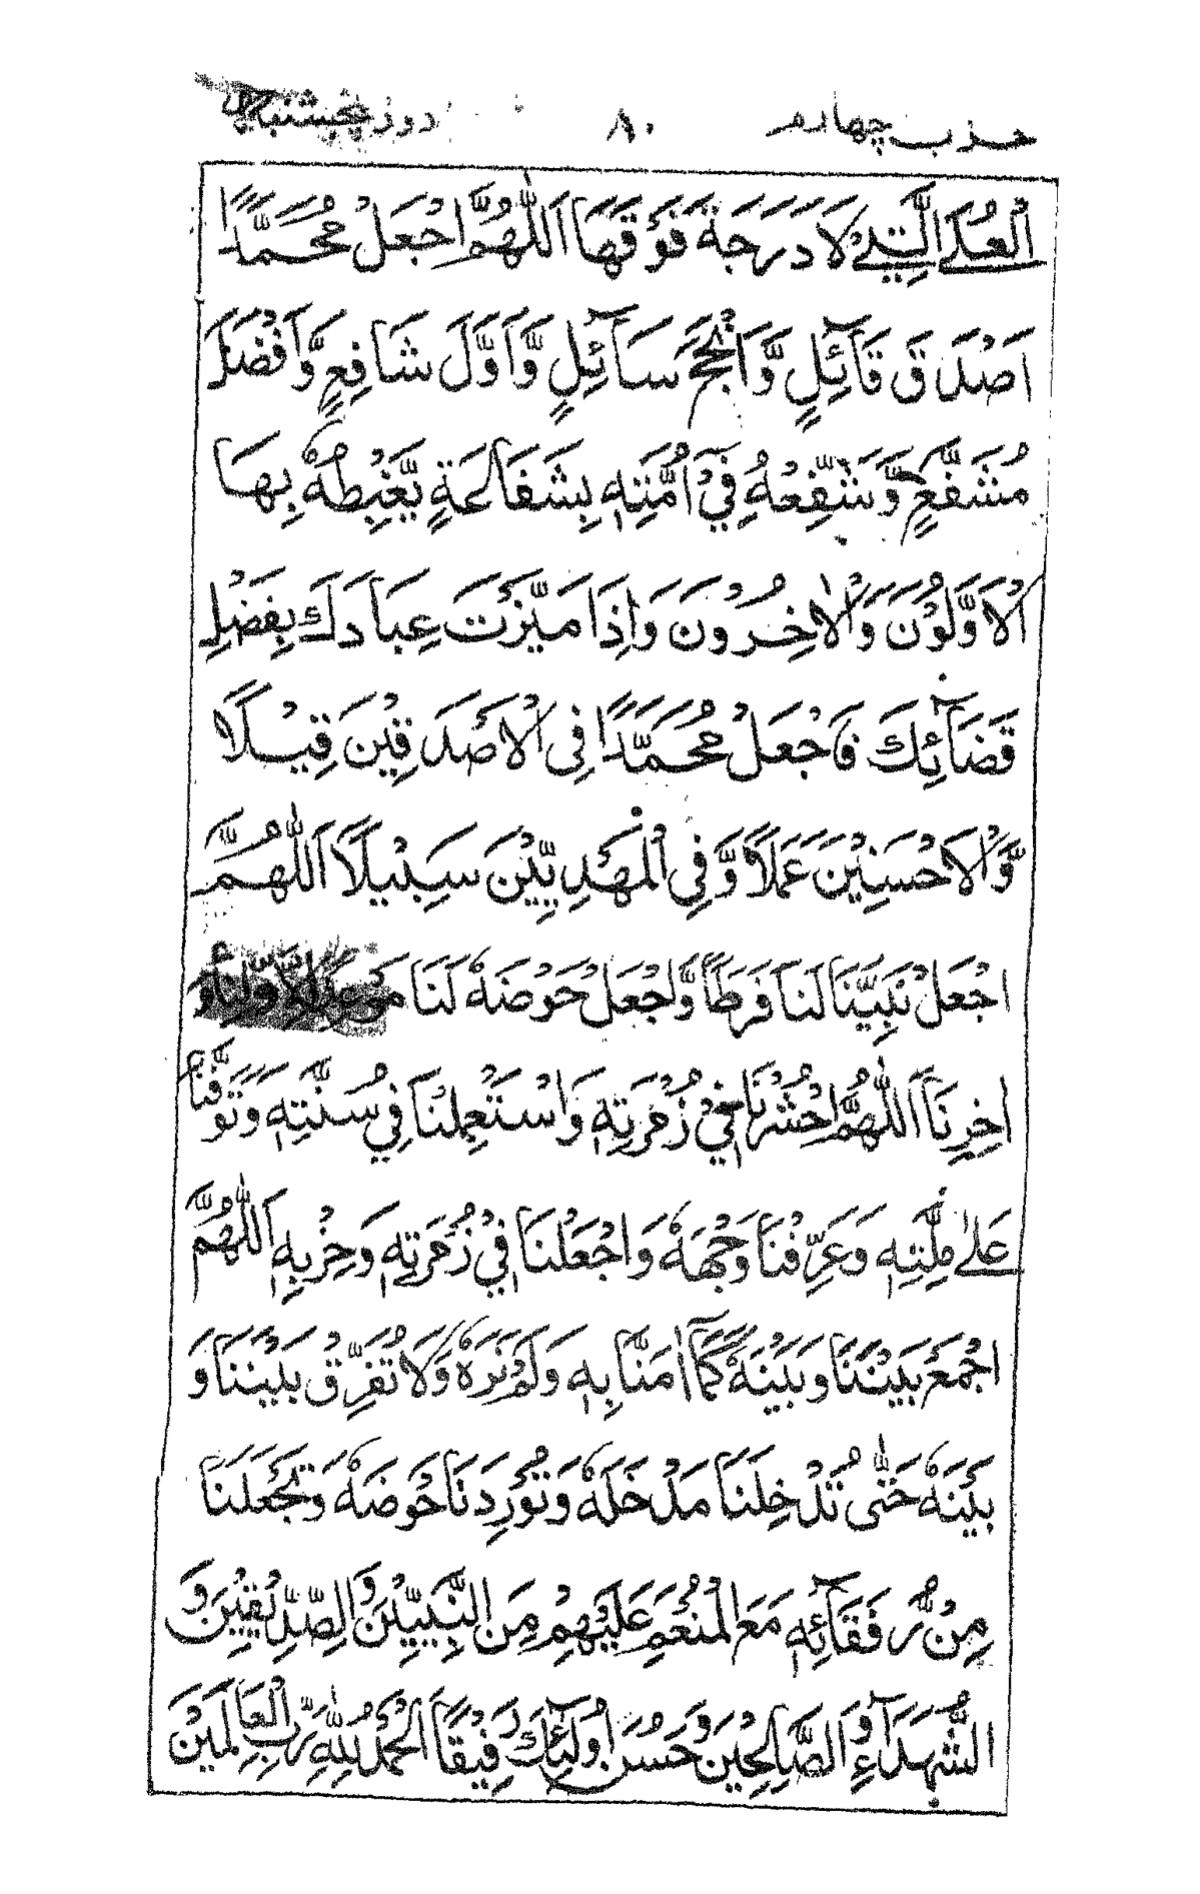 حزب چهارم ٨٠ روز پنجشنبه
الْعُلَى الَّتِيْ لَا دَرَجَةَ فَوْقَهَا اَللّٰهُمَّ اجْعَلْ مُحَمَّدًا
اَصْدَقَ قَآئِلٍ وَّاَنْجَحَ سَآئِلٍ وَّاَوَّلَ شَافِعٍ وَّاَفْضَلَ
مُشَفَّعٍ وَّشَفِّعْهُ فِيْ اُمَّتِهٖ بِشَفَاعَةٍ يَّغْبِطُهٗ بِهَا
الْاَوَّلُوْنَ وَالْاٰخِرُوْنَ وَاِذَا مَيَّزْتَ عِبَادَكَ بِفَضْلِ
قَضَآئِكَ فَاجْعَلْ مُحَمَّدًا فِى الْاَصْدَقِيْنَ قِيْلًا
وَّالْاَحْسَنِيْنَ عَمَلًا وَّفِى الْمَهْدِيِّيْنَ سَبِيْلًا اَللّٰهُمَّ
اجْعَلْ نَبِيَّنَا لَنَا فَرَطًا وَّاجْعَلْ حَوْضَهٗ لَنَا مَوْعِدًا لِاَوَّلِنَا وَ
اٰخِرِنَا اَللّٰهُمَّ احْشُرْنَا فِيْ زُمْرَتِهٖ وَاسْتَعْمِلْنَا فِيْ سُنَّتِهٖ وَتَوَفَّنَا
عَلٰى مِلَّتِهٖ وَعَرِّفْنَا وَجْهَهٗ وَاجْعَلْنَا فِيْ زُمْرَتِهٖ وَحِزْبِهٖ اَللّٰهُمَّ
اجْمَعْ بَيْنَنَا وَبَيْنَهٗ كَمَآ اٰمَنَّا بِهٖ وَلَمْ نَرَهٗ وَلَا تُفَرِّقْ بَيْنَنَا وَ
بَيْنَهٗ حَتّٰى تُدْخِلَنَا مَدْخَلَهٗ وَتُوْرِدَنَا حَوْضَهٗ وَتَجْعَلَنَا
مِنْ رُّفَقَآئِهٖ مَعَ الْمُنْعَمِ عَلَيْهِمْ مِنَ النَّبِيِّيْنَ وَالصِّدِّيْقِيْنَ وَ
الشُّهَدَآءِ وَالصَّالِحِيْنَ وَحَسُنَ اُولٰٓئِكَ رَفِيْقًا اَلْحَمْدُ لِلّٰهِ رَبِّ الْعَالَمِيْنَ